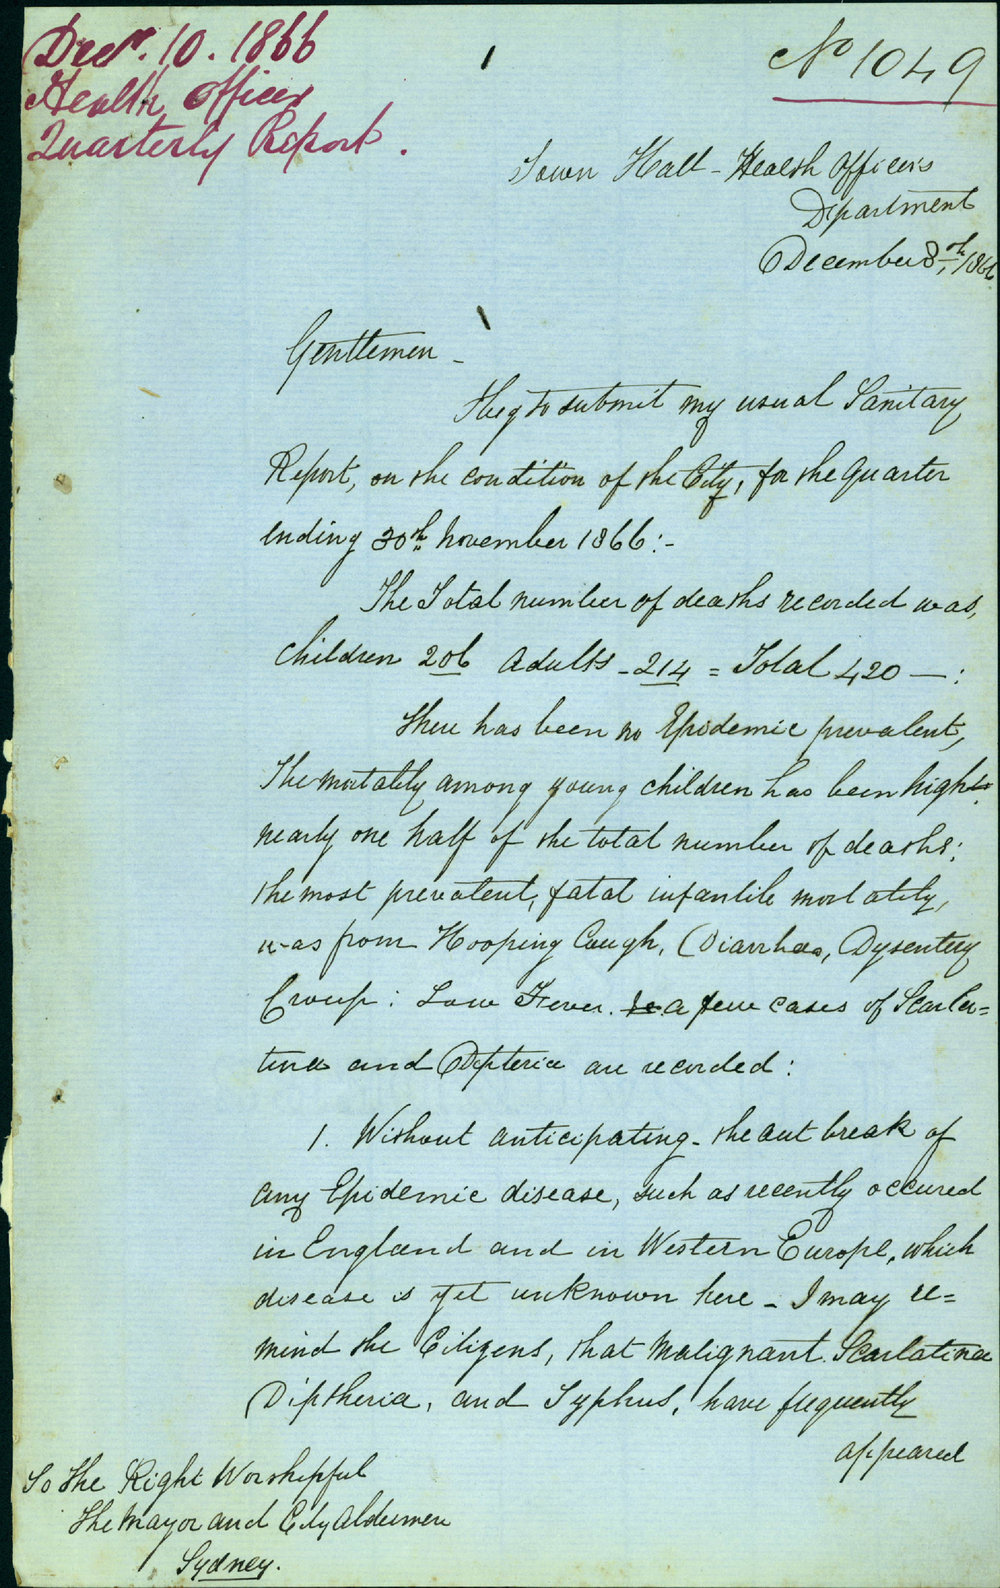 Decr. 10. 1866
Health Officer
Quarterly Report.
No 1049
Town Hall - Health Officers
Department
December 8th, 1866
Gentlemen -
I beg to submit my usual Sanitary
Report, on the condition of the City, for the quarter
ending 30th November 1866:-
The Total number of deaths recorded was,
Children 206 Adults - 214 = Total 420 - :
There has been no Epidemic prevalent,
The mortality among young children has been high
nearly one half of the total number of deaths;
the most prevalent, fatal infantile mortality,
was from Hooping Cough, Diarrhoea, Dysentery
Croup: Low Fever. a few cases of Scarla=
tina and Dipteria are recorded:
1. Without anticipating - the out break of
any Epidemic disease, such as recently occured
in England and in Western Europe, which
disease is yet unknown here - I may re=
mind the Citizens, that Malignant Scarlatina
Diptheria, and Typhus, have frequently
appeared
To The Right Worshipful
The Mayor and City Aldermen
Sydney.